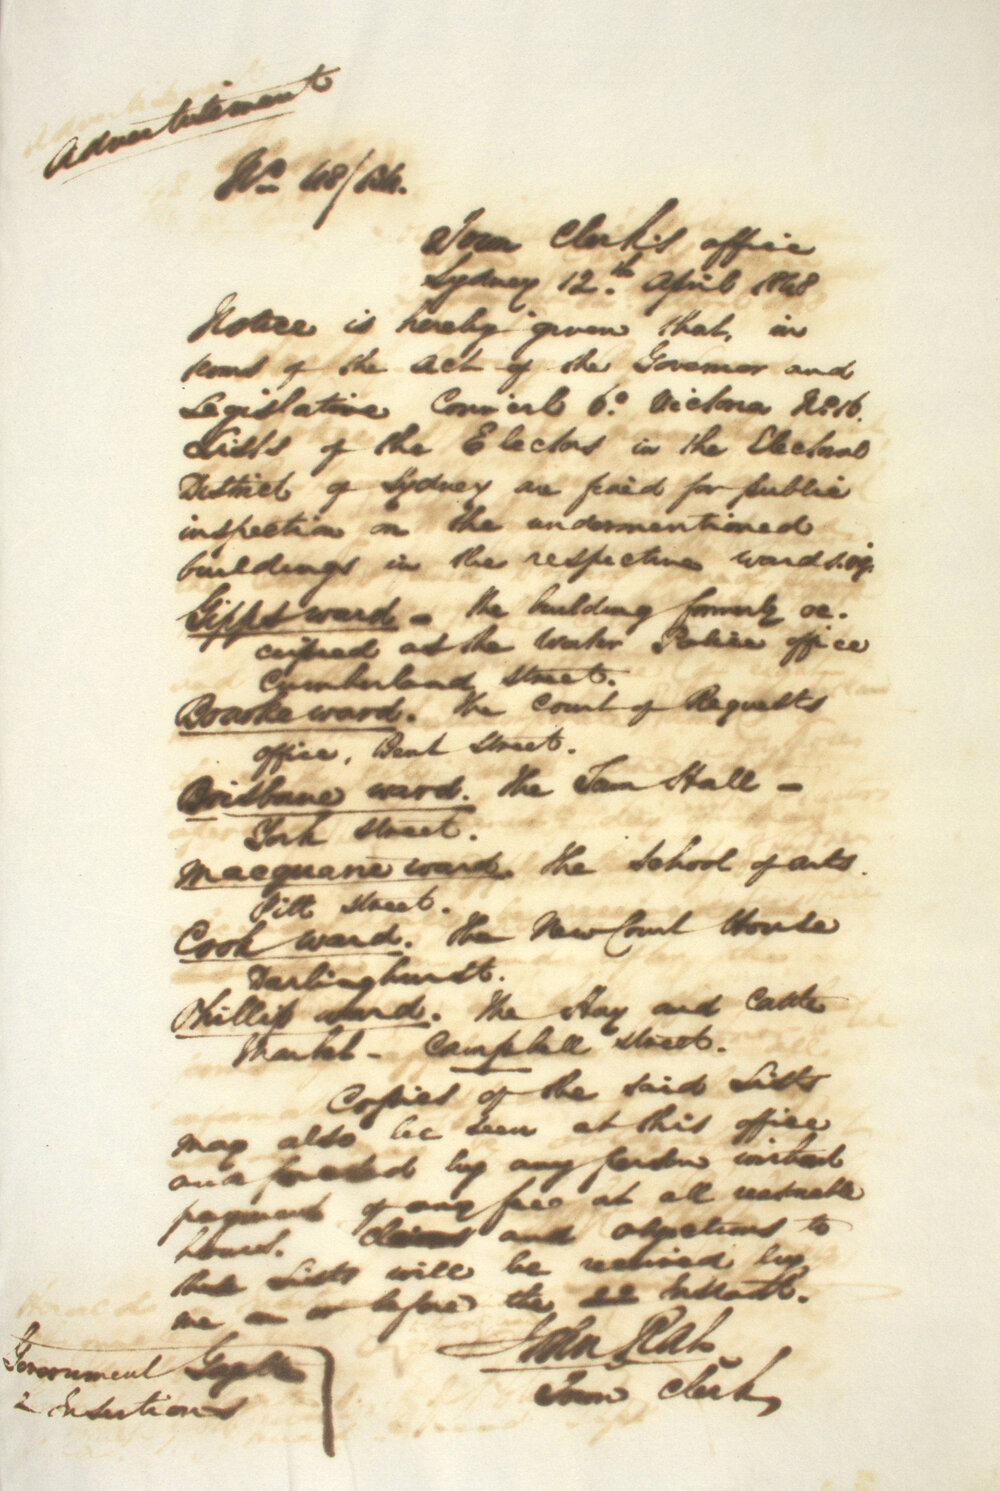 Advertisement
No 48/64.
Town Clerk's office
Sydney 12th April 1848
Notice is hereby given that, in
terms of the Act of the Governor and
Legislative Council 6o Victoria No 16.
Lists of the Electors in the Electoral
District of Sydney are fixed for public
inspection on the undermentioned
buildings in the respective wards. viz.
Gipps ward - the building formerly oc-
cupied as the Water Police office
Cumberland Street.
Bourke ward. The Court of Requests
office, Bent Street.
Brisbane ward. The Town Hall -
York Street.
Macquarie ward. The School of Arts.
Pitt Street.
Cook ward. The New Court House
Darlinghurst.
Phillip ward. The Hay and Cattle
Market - Campbell Street.
Copies of the said Lists
may also be seen at this office
and perused by any person without
payment of any fee at all reasonable
hours. Claims and objections to
these Lists will be received by
me on or before the 22 Instant.
John Rae
Town Clerk
Government Gazette
2 Insertions